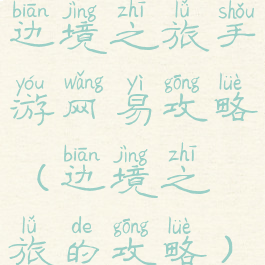 biān jìng zhī lǚ shǒu
边境之旅手
yóu wǎng yì gōng lüè
游网易攻略
biān jìng zhī
（边境之
lǚ de gōng lüè
旅的攻略）